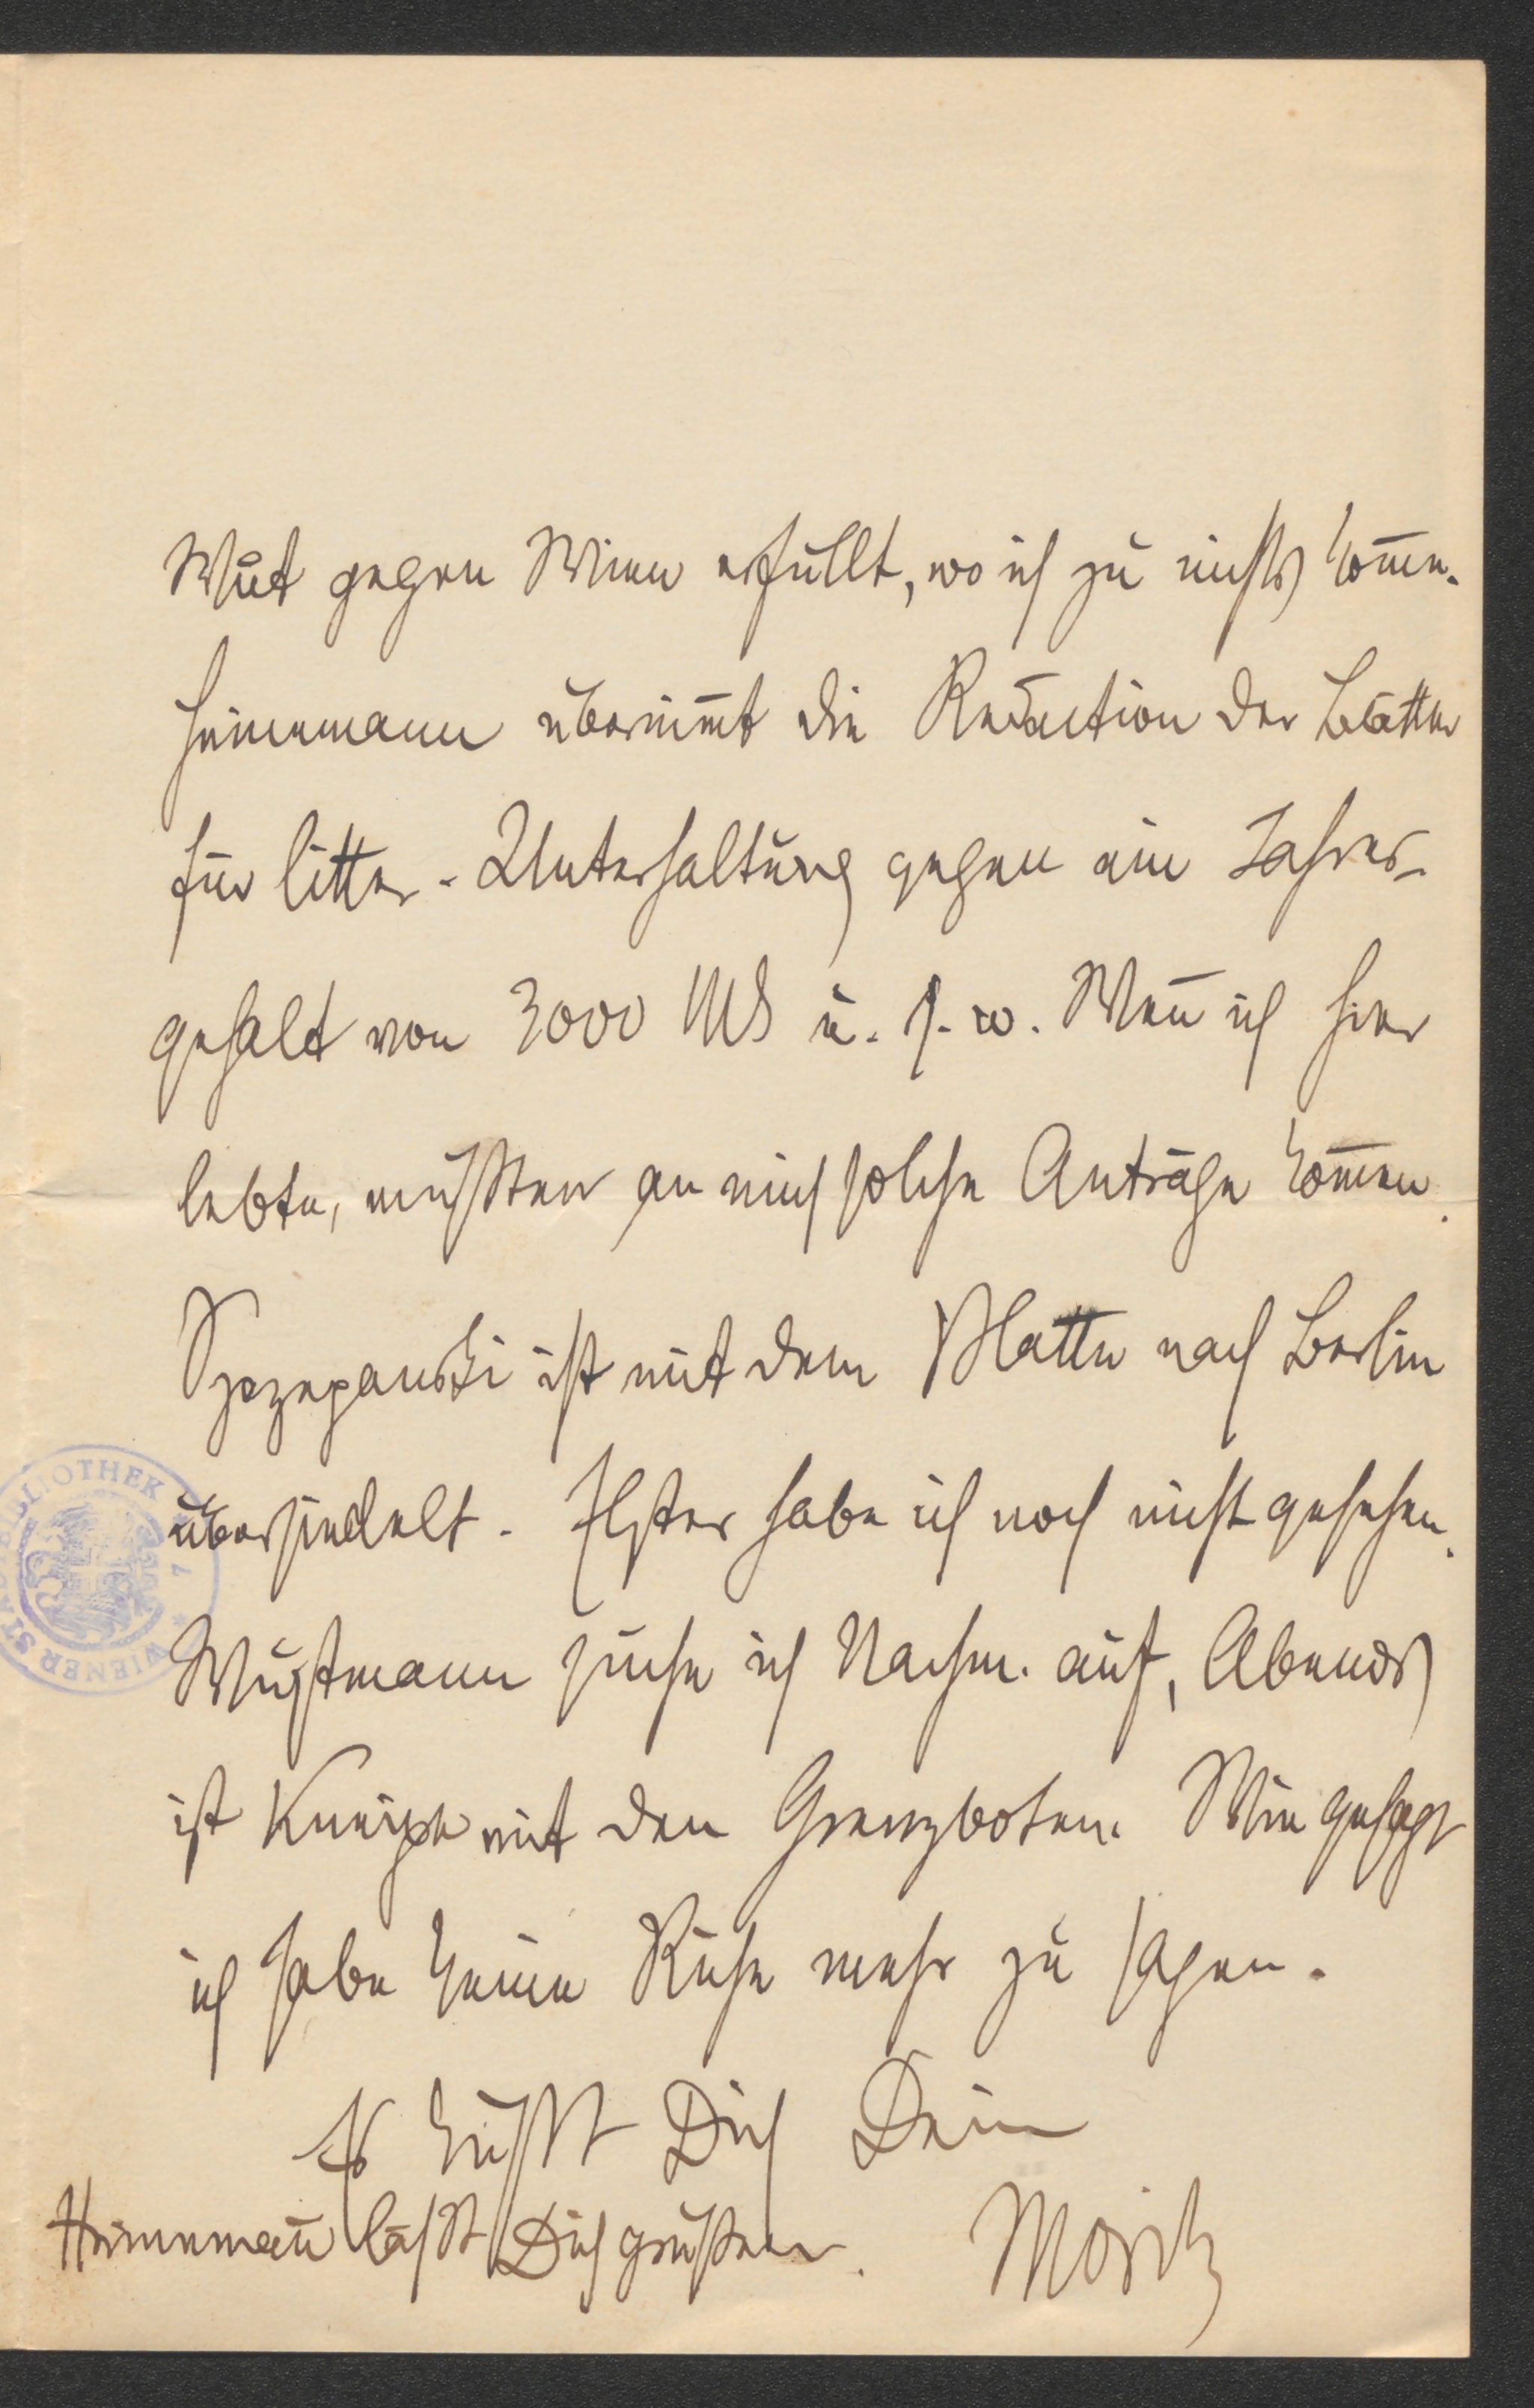 Wut gegen Wien erfüllt, wo ich zu nichts kom̅e.
Heinemann übernim̅t die Redaction der Blätter
für litter. Unterhaltung gegen ein Jahres-
gehalt von 3000 Mk u. s. w. Wen̅ ich hier
lebte, müßten an mich solche Anträge kom̅en.
Szczepanski ist mit dem Blatte nach Berlin
übersiedelt. Elster habe ich noch nicht gesehen.
Wustmann suche ich Nachm. auf, Abends
ist Kneipe mit den Grenzboten. Wie gesagt
ich habe keine Ruhe mehr zu sagen.
Es küßt Dich Dein
Heinneman̅ läßt Dich grüßen. Moritz
BIBLIOTHEK
WIENER STADT